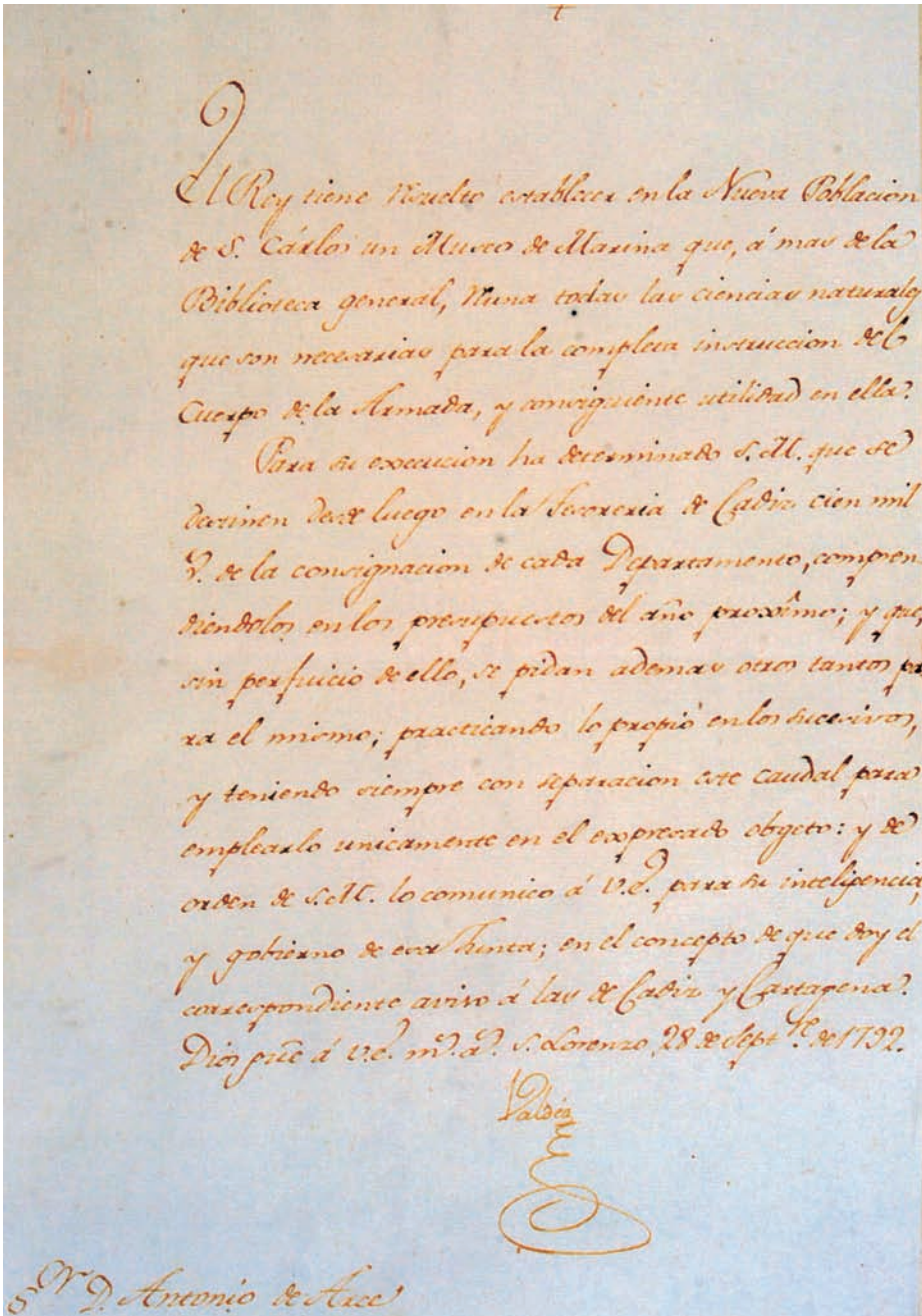 El Rey tiene resuelto establecer en la Nueva Poblacion
de S. Cárlos un Museo de Marina que, á mas de la
Biblioteca general, reuna todas las ciencias naturales
que son necesarias para la completa instruccion del
Cuerpo de la Armada, y consiguiente utilidad en ella.
Para su execucion ha determinado S.M. que se
destinen desde luego en la Tesoreria de Cadiz cien mil
r. de la consignacion de cada Departamento, compren
diendolos en los presupuestos del año proxîmo; y que,
sin perjuicio de ello, se pidan ademas otros tantos pa
ra el mismo; practicando lo propio en los sucesivos,
y teniendo siempre con separacion este caudal para
emplearlo unicamente en el expresado obgeto: y de
orden de S.M. lo comunico á V.E. para su inteligencia,
y gobierno de esa Junta; en el concepto de que doy el
correspondiente aviso á las de Cadiz y Cartagena.
Dios gũe á V.E. m.s a.s S. Lorenzo 28 de Sept.re de 1792.
Valdés
S.or D. Antonio de Arce